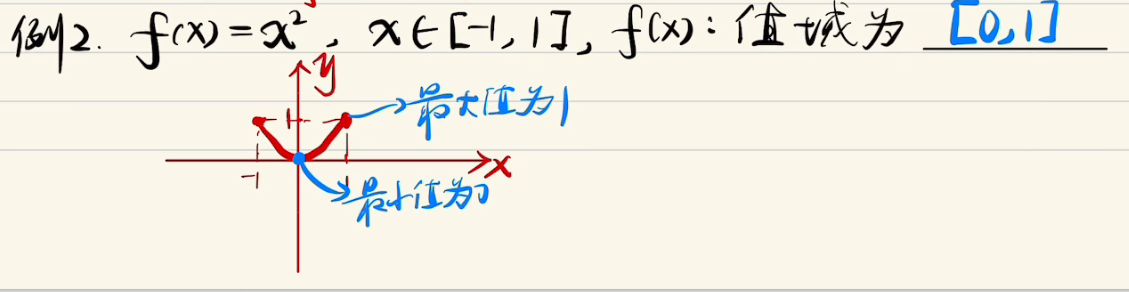 例2. f(x)=x², x∈[-1,1], f(x):值域为 [0,1]
y
1
最大值为1
-1
1
x
最小值为0